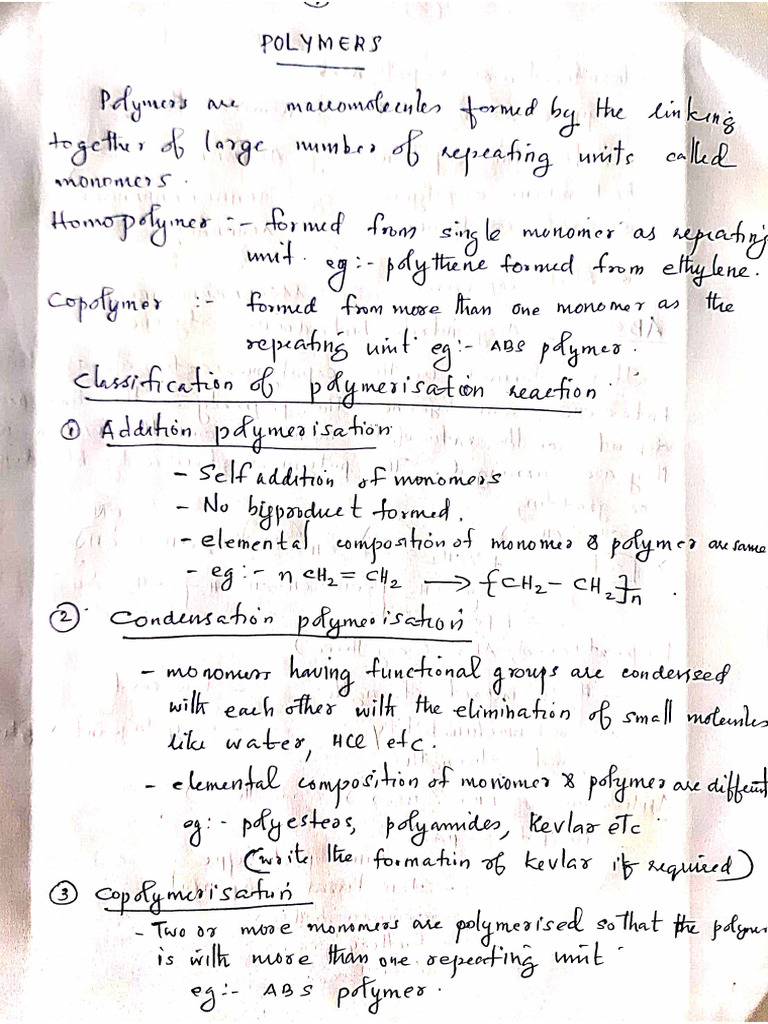 POLYMERS
Polymers are macromolecules formed by the linking
together of large number of repeating units called
monomers.
Homopolymer :- formed from single monomer as repeating
unit. eg:- polythene formed from ethylene.
Copolymer :- formed from more than one monomer as the
repeating unit eg:- ABS polymer.
Classification of polymerisation reaction
① Addition polymerisation
- Self addition of monomers
- No biproduct formed.
- elemental composition of monomer & polymer are same
- eg:- n CH2 = CH2 → {CH2 - CH2}n
② Condensation polymerisation
- monomers having functional groups are condensed
with each other with the elimination of small molecules
like water, HCl etc.
- elemental composition of monomer & polymer are different
eg:- polyesters, polyamides, Kevlar etc
(write the formation of kevlar if required)
③ Copolymerisation
- Two or more monomers are polymerised so that the polymer
is with more than one repeating unit.
eg:- ABS polymer.